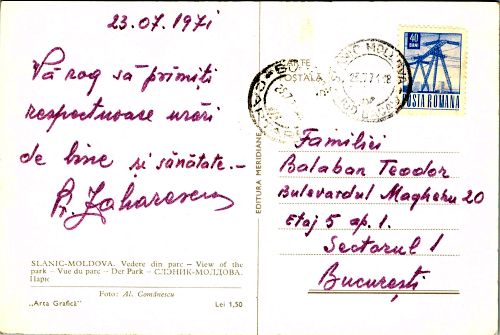 23.07.1971
Vă rog să primiți
respectuoase urări
de bine și sănătate.-
SLANIC-MOLDOVA. Vedere din parc – View of the
park – Vue du parc – Der Park – СЛЭНИК-МОЛДОВА.
Парк
Foto: Al. Comănescu
„Arta Grafică”
Lei 1,50
EDITURA MERIDIANE
CARTE
POȘTALĂ
40
BANI
POSTA ROMANA
Familiei
Balaban Teodor
Bulevardul Magheru 20
Etaj 5 ap. 1.
Sectorul 1
București